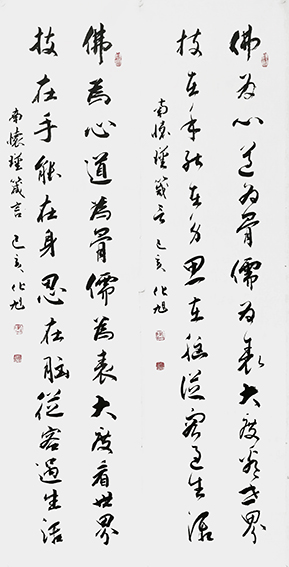 佛为心道为骨儒为表大度看世界
技在手能在身思在脑從容过生活
南懷瑾箴言 己亥 化旭
佛為心道為骨儒為表大度看世界
技在手能在身思在脑從容過生活
南懷瑾箴言 己亥 化旭